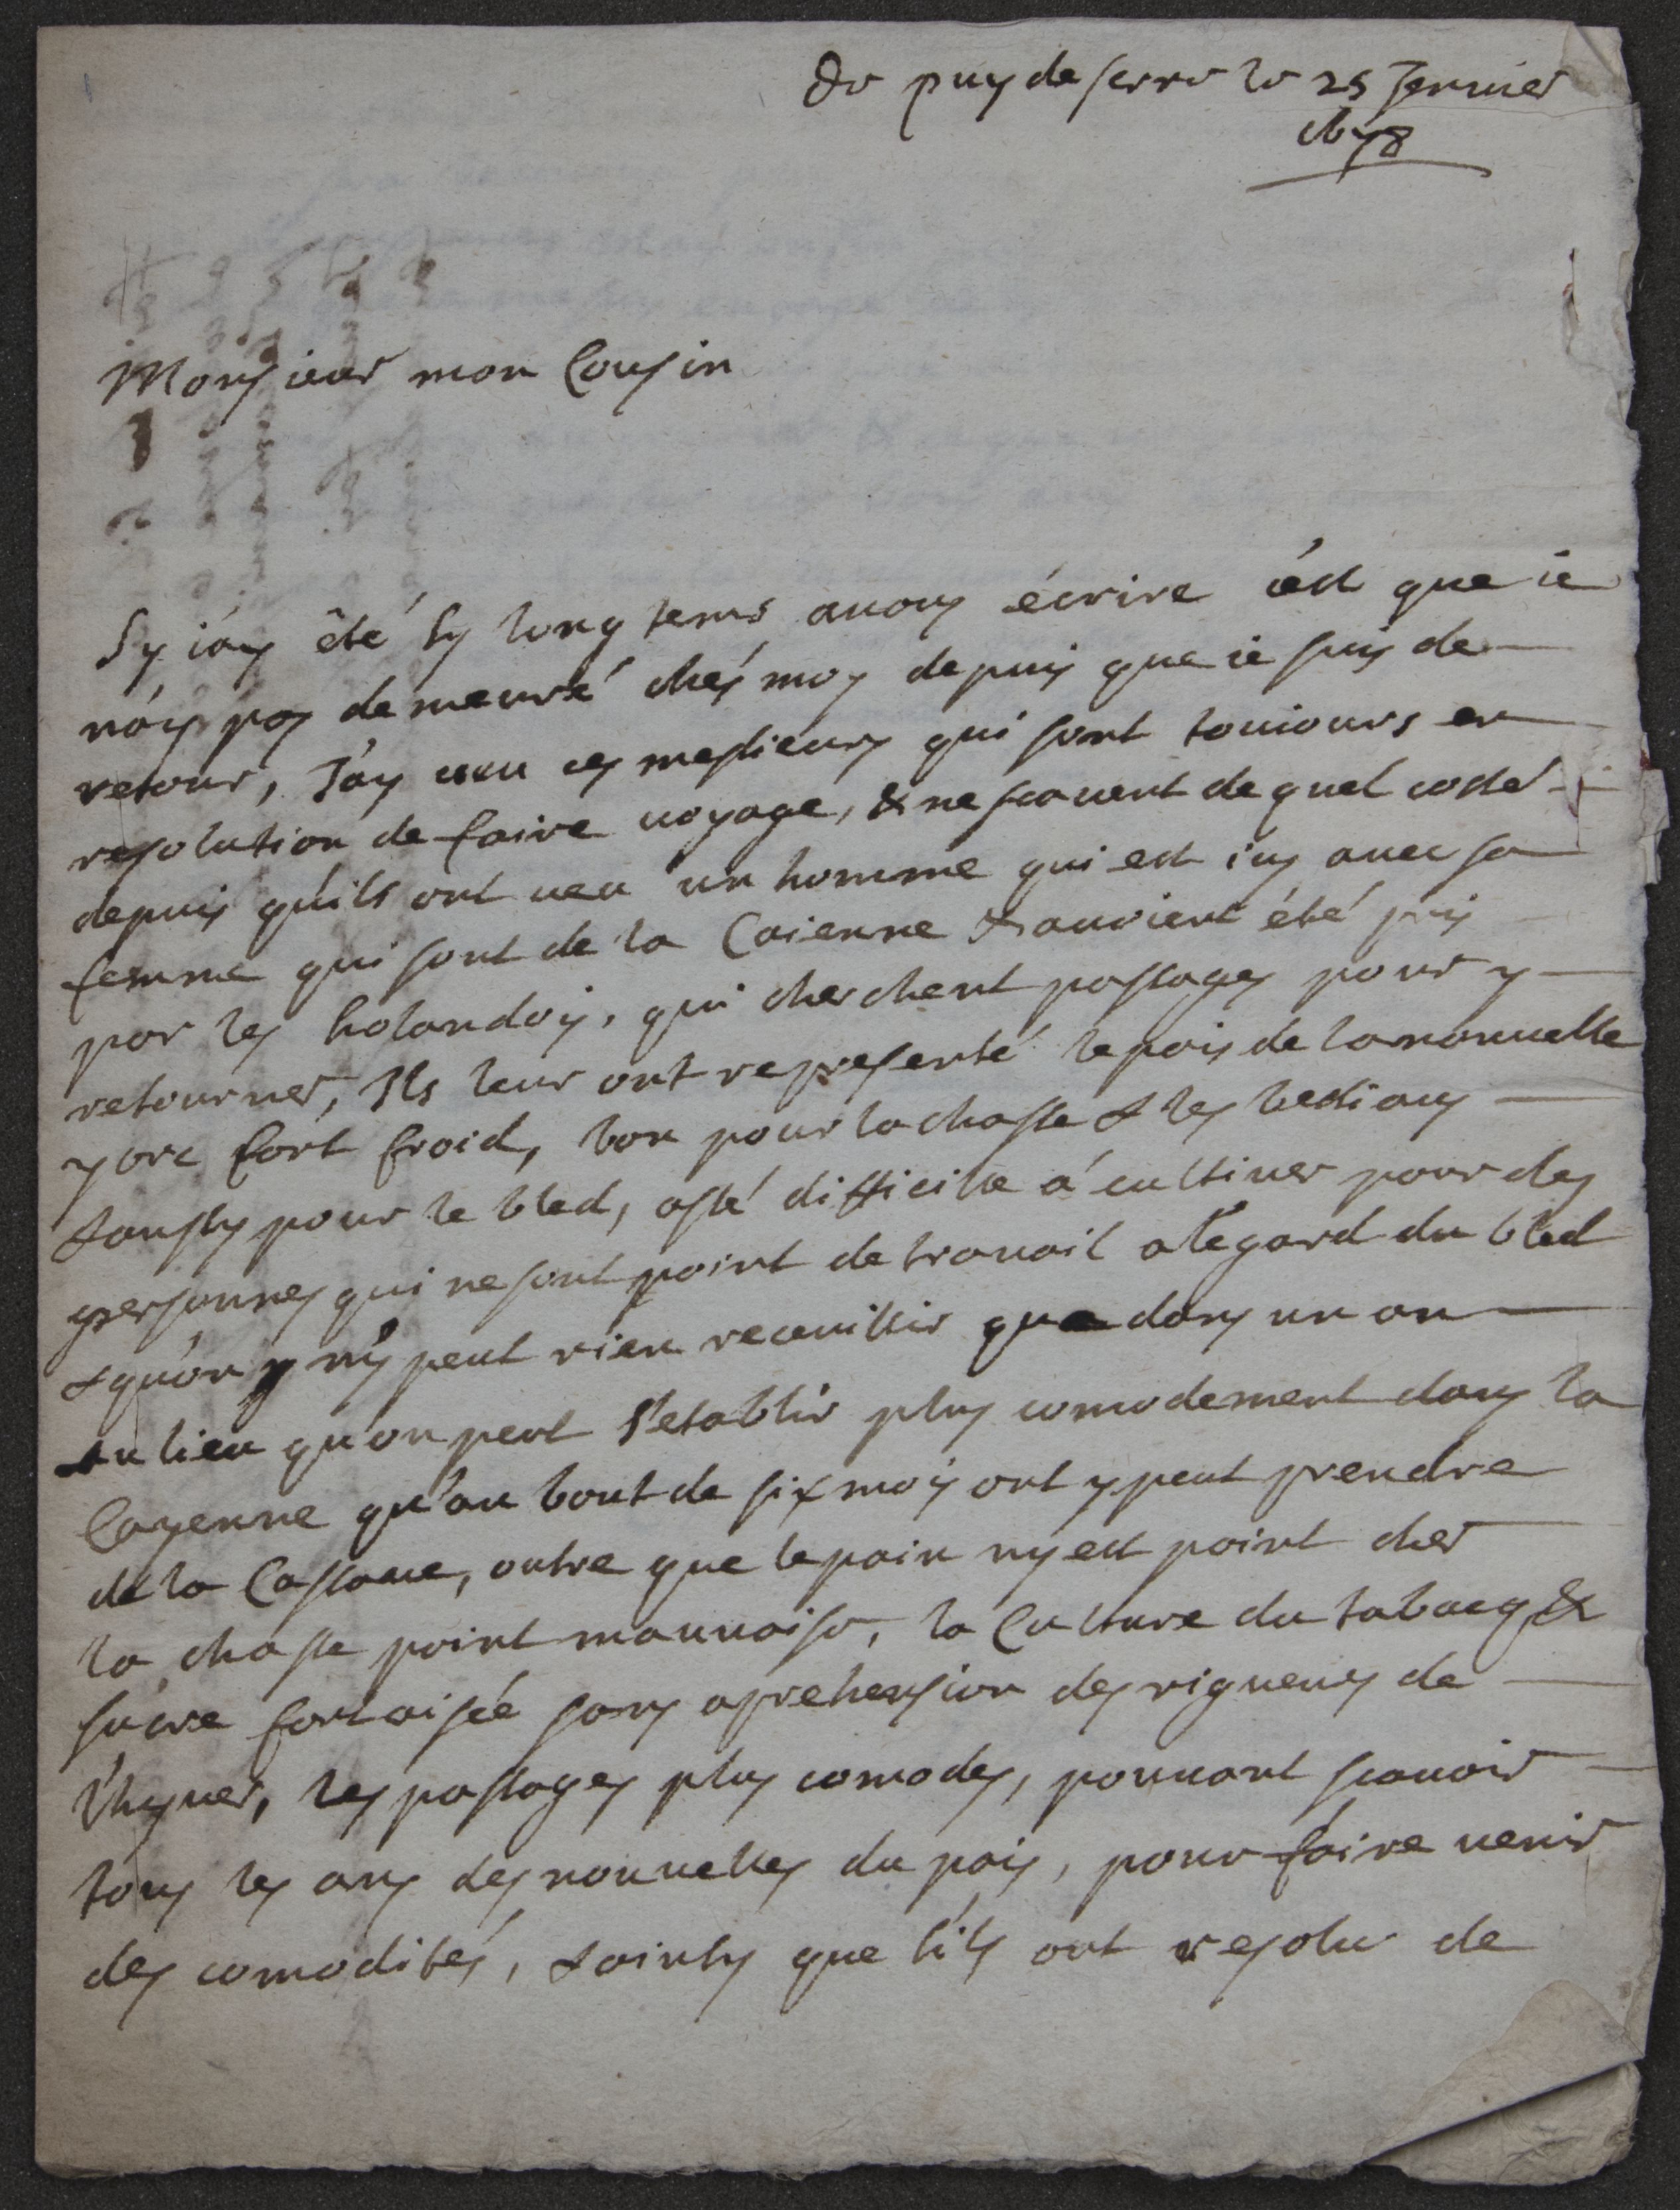 De puy de serre le 25 Jenuier
1678
Monsieur mon Cousin
Sy i'ay été sy long tems auous écrire c'est que ie
n'ay pas demeuré chés moy depuis que ie suis de
retour, J'ay veu ces messieurs qui sont touiours en
resolution de faire uoyage, & ne scauent de quel costé
depuis qu'ils ont veu un homme qui est icy auec sa
femme qui sont de la Caienne & auoient été pris
par les holandois, qui cherchent passages pour y
retourner, Ils leur ont representé le pais de la nouuelle
yorc fort froid, bon pour la chasse & les bestiaus
& aussy pour le bled, assé difficille á cultiuer pour des
personnes qui ne font point de trauail a l'egard du bled
& qu'on n'y peut rien receuillir que dans un an
au lieu qu'on peut s'etablir plus comodement dans la
Cayenne qu'au bout de six mois ont y peut prendre
de la Cassaue, outre que le pain ny est point cher
la chasse point mauuaise, la Culture du tabacq &
sucre fort aisée sans aprehension des rigueurs de
l'hyuer, les passages plus comodes, pouuant scauoir
tous les ans des nouuelles du pais, pour faire uenir
des comodités, & ainsy que s'ils ont resolu de